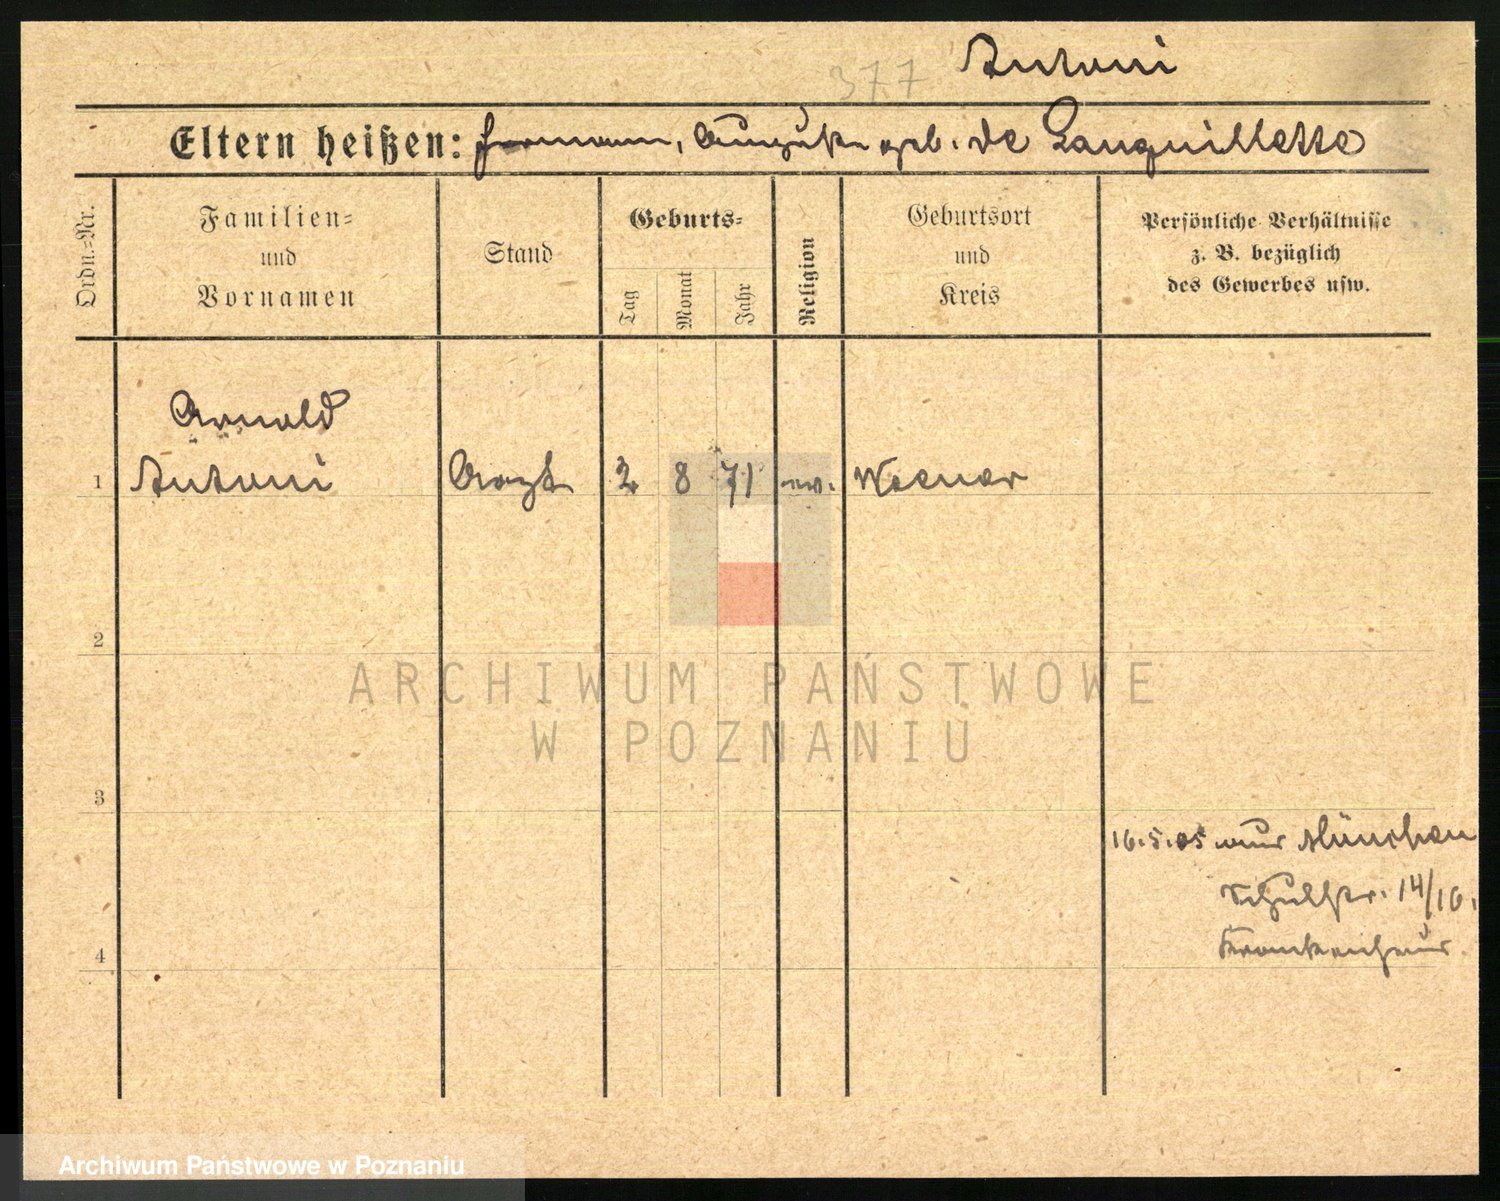 377 Antoni
Eltern heißen: Hermann, Auguste geb. de Languillette
Ordn.-Nr.
Familien-
und
Vornamen
Stand
Geburts-
Tag
Monat
Jahr
Religion
Geburtsort
und
Kreis
Persönliche Verhältnisse
z. B. bezüglich
des Gewerbes usw.
Arnold
1 Antoni Arzt 2. 8 71 ev.
2
ARCHIWUM PAŃSTWOWE
W POZNANIU
3
16.5.05 nach München
Schulstr. 14/16.
Krankenhaus.
4
Archiwum Państwowe w Poznaniu